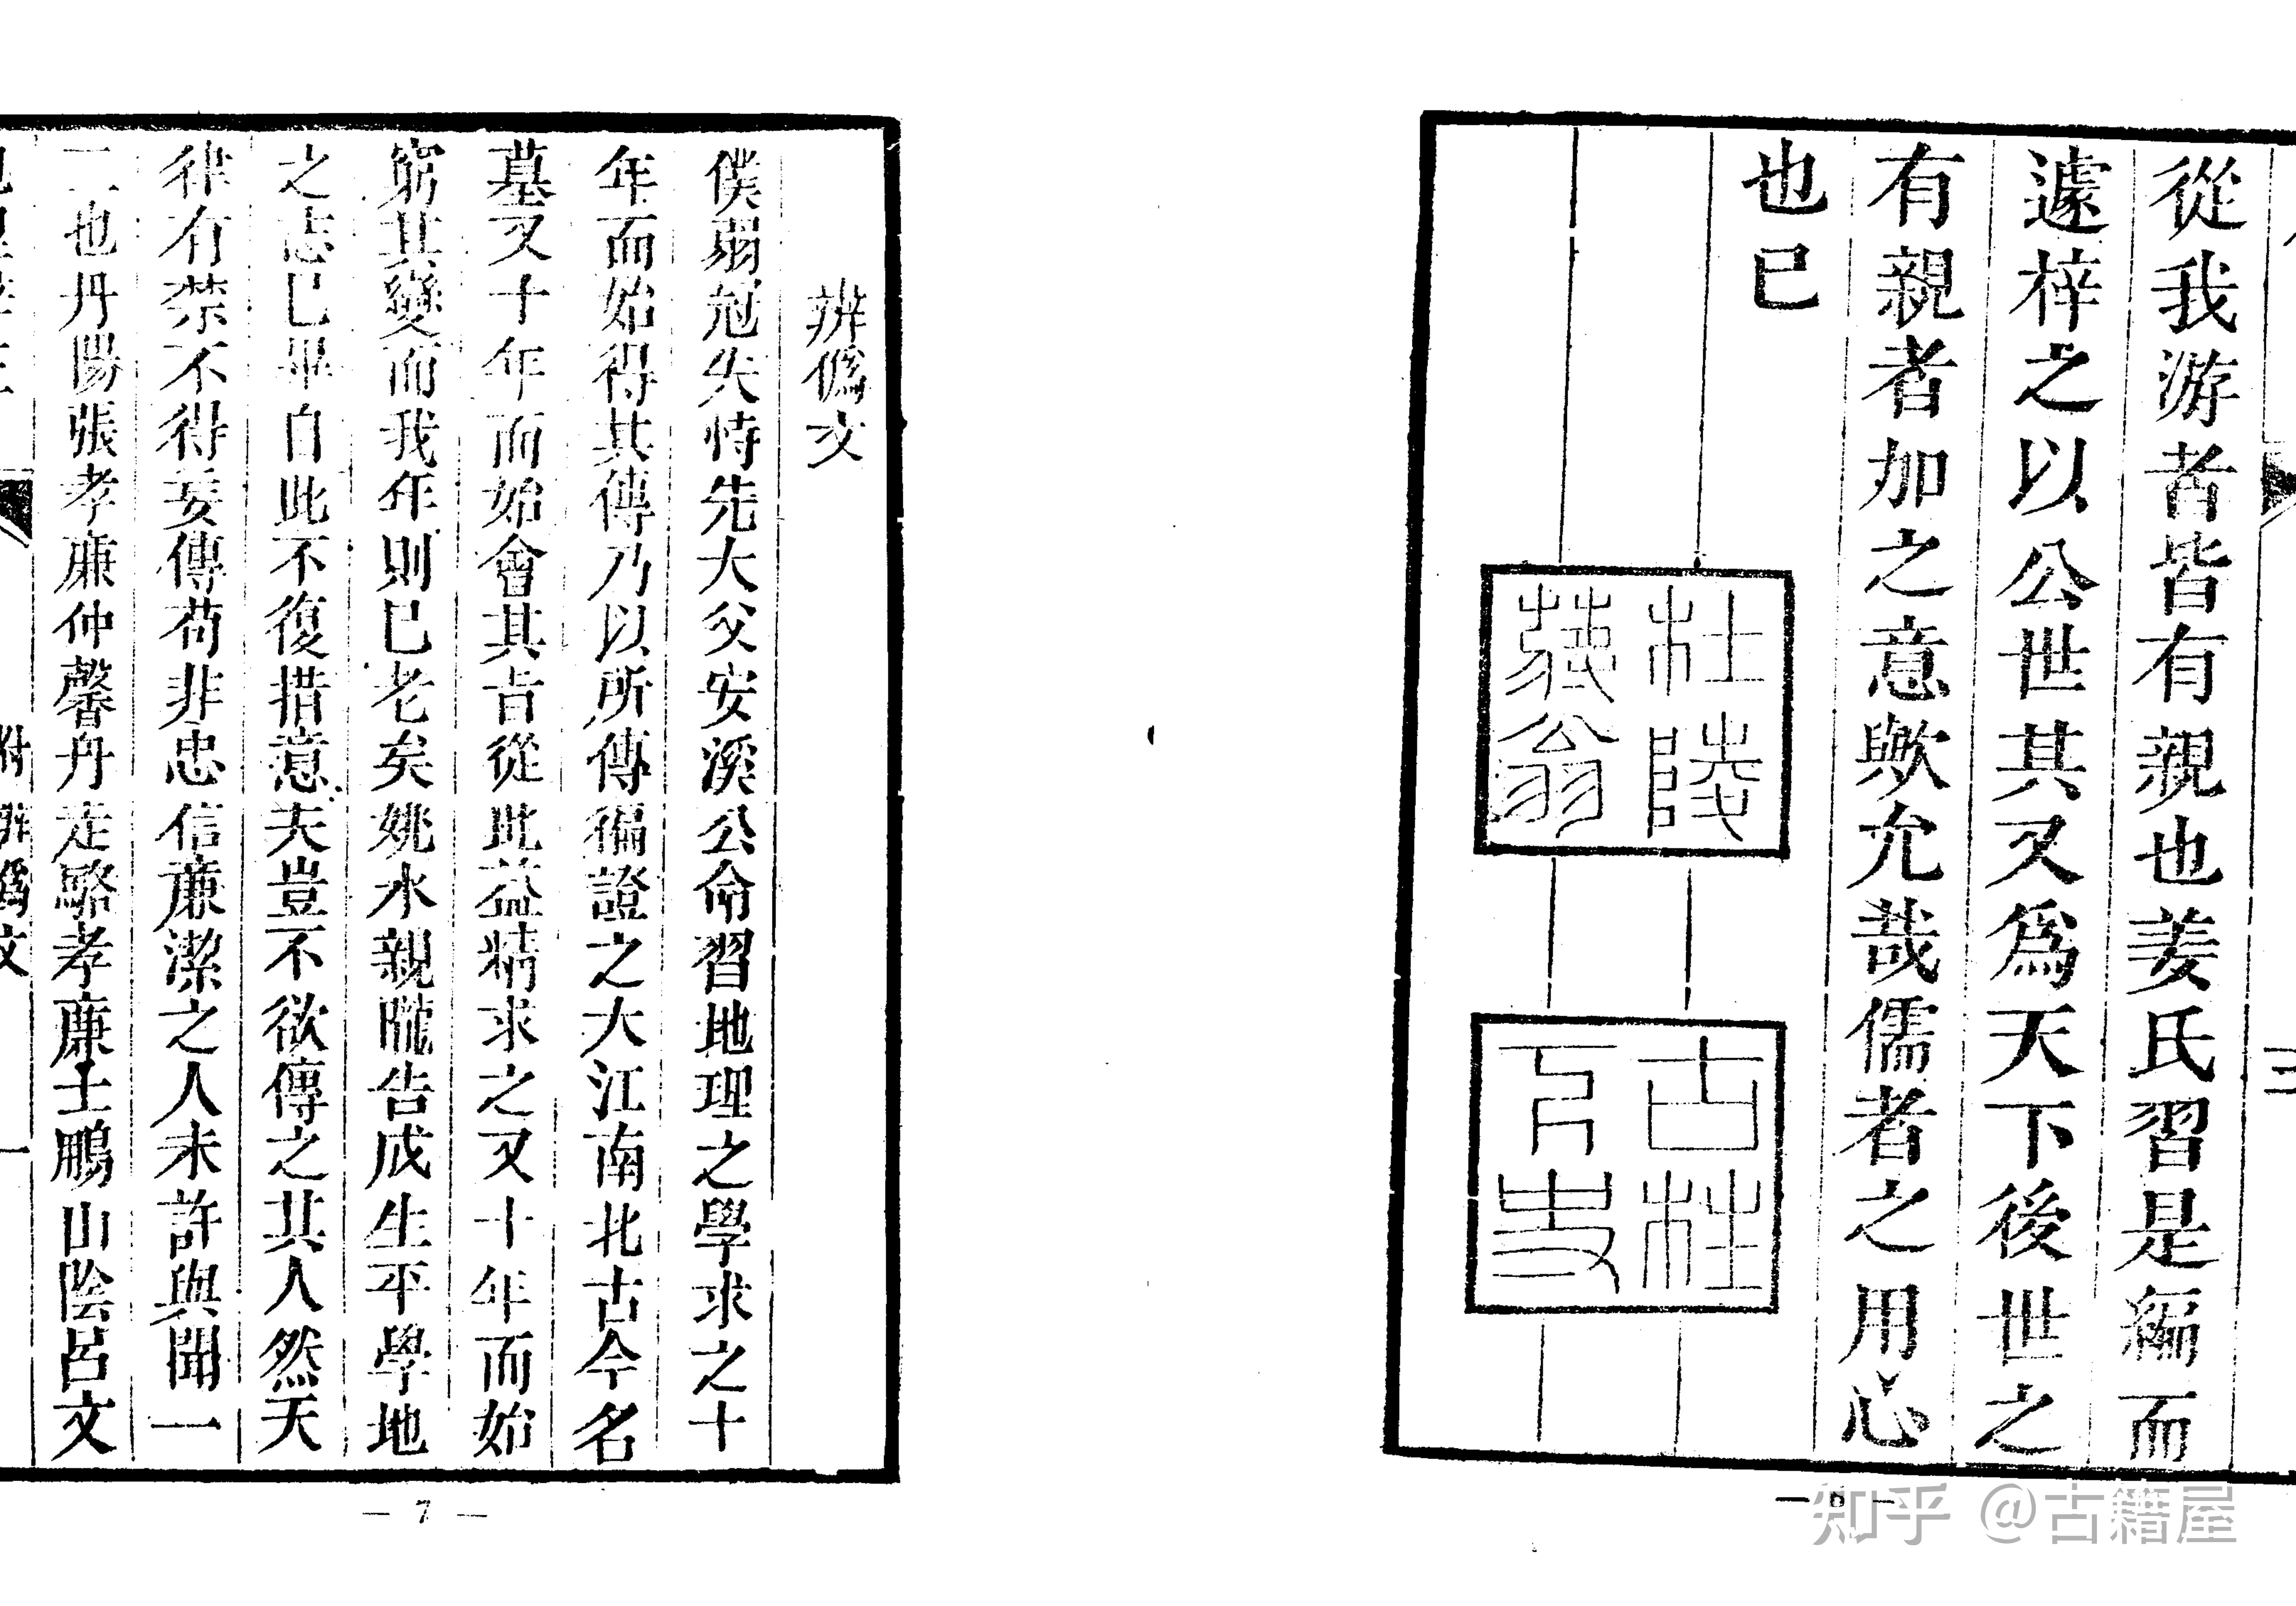 從我游者皆有親也姜氏習是編而
遽梓之以公世其又爲天下後世之
有親者加之意歟允哉儒者之用心
也已
杜陵
蔣翁
三
辨僞文
僕弱冠失恃先大父安溪公命習地理之學求之十
年而始得其傳乃以所傳徧證之大江南北古今名
墓又十年而始會其旨從此益精求之又十年而始
窮其變而我年則已老矣姚水親隴告成生平學地
之志已畢自此不復措意夫豈不欲傳之其人然天
律有禁不得妄傳苟非忠信廉潔之人未許與聞一
二也丹陽張孝廉仲馨丹走駱孝廉士鵬山陰呂文
附辨僞文
一
— 7 —
知乎 @古籍屋